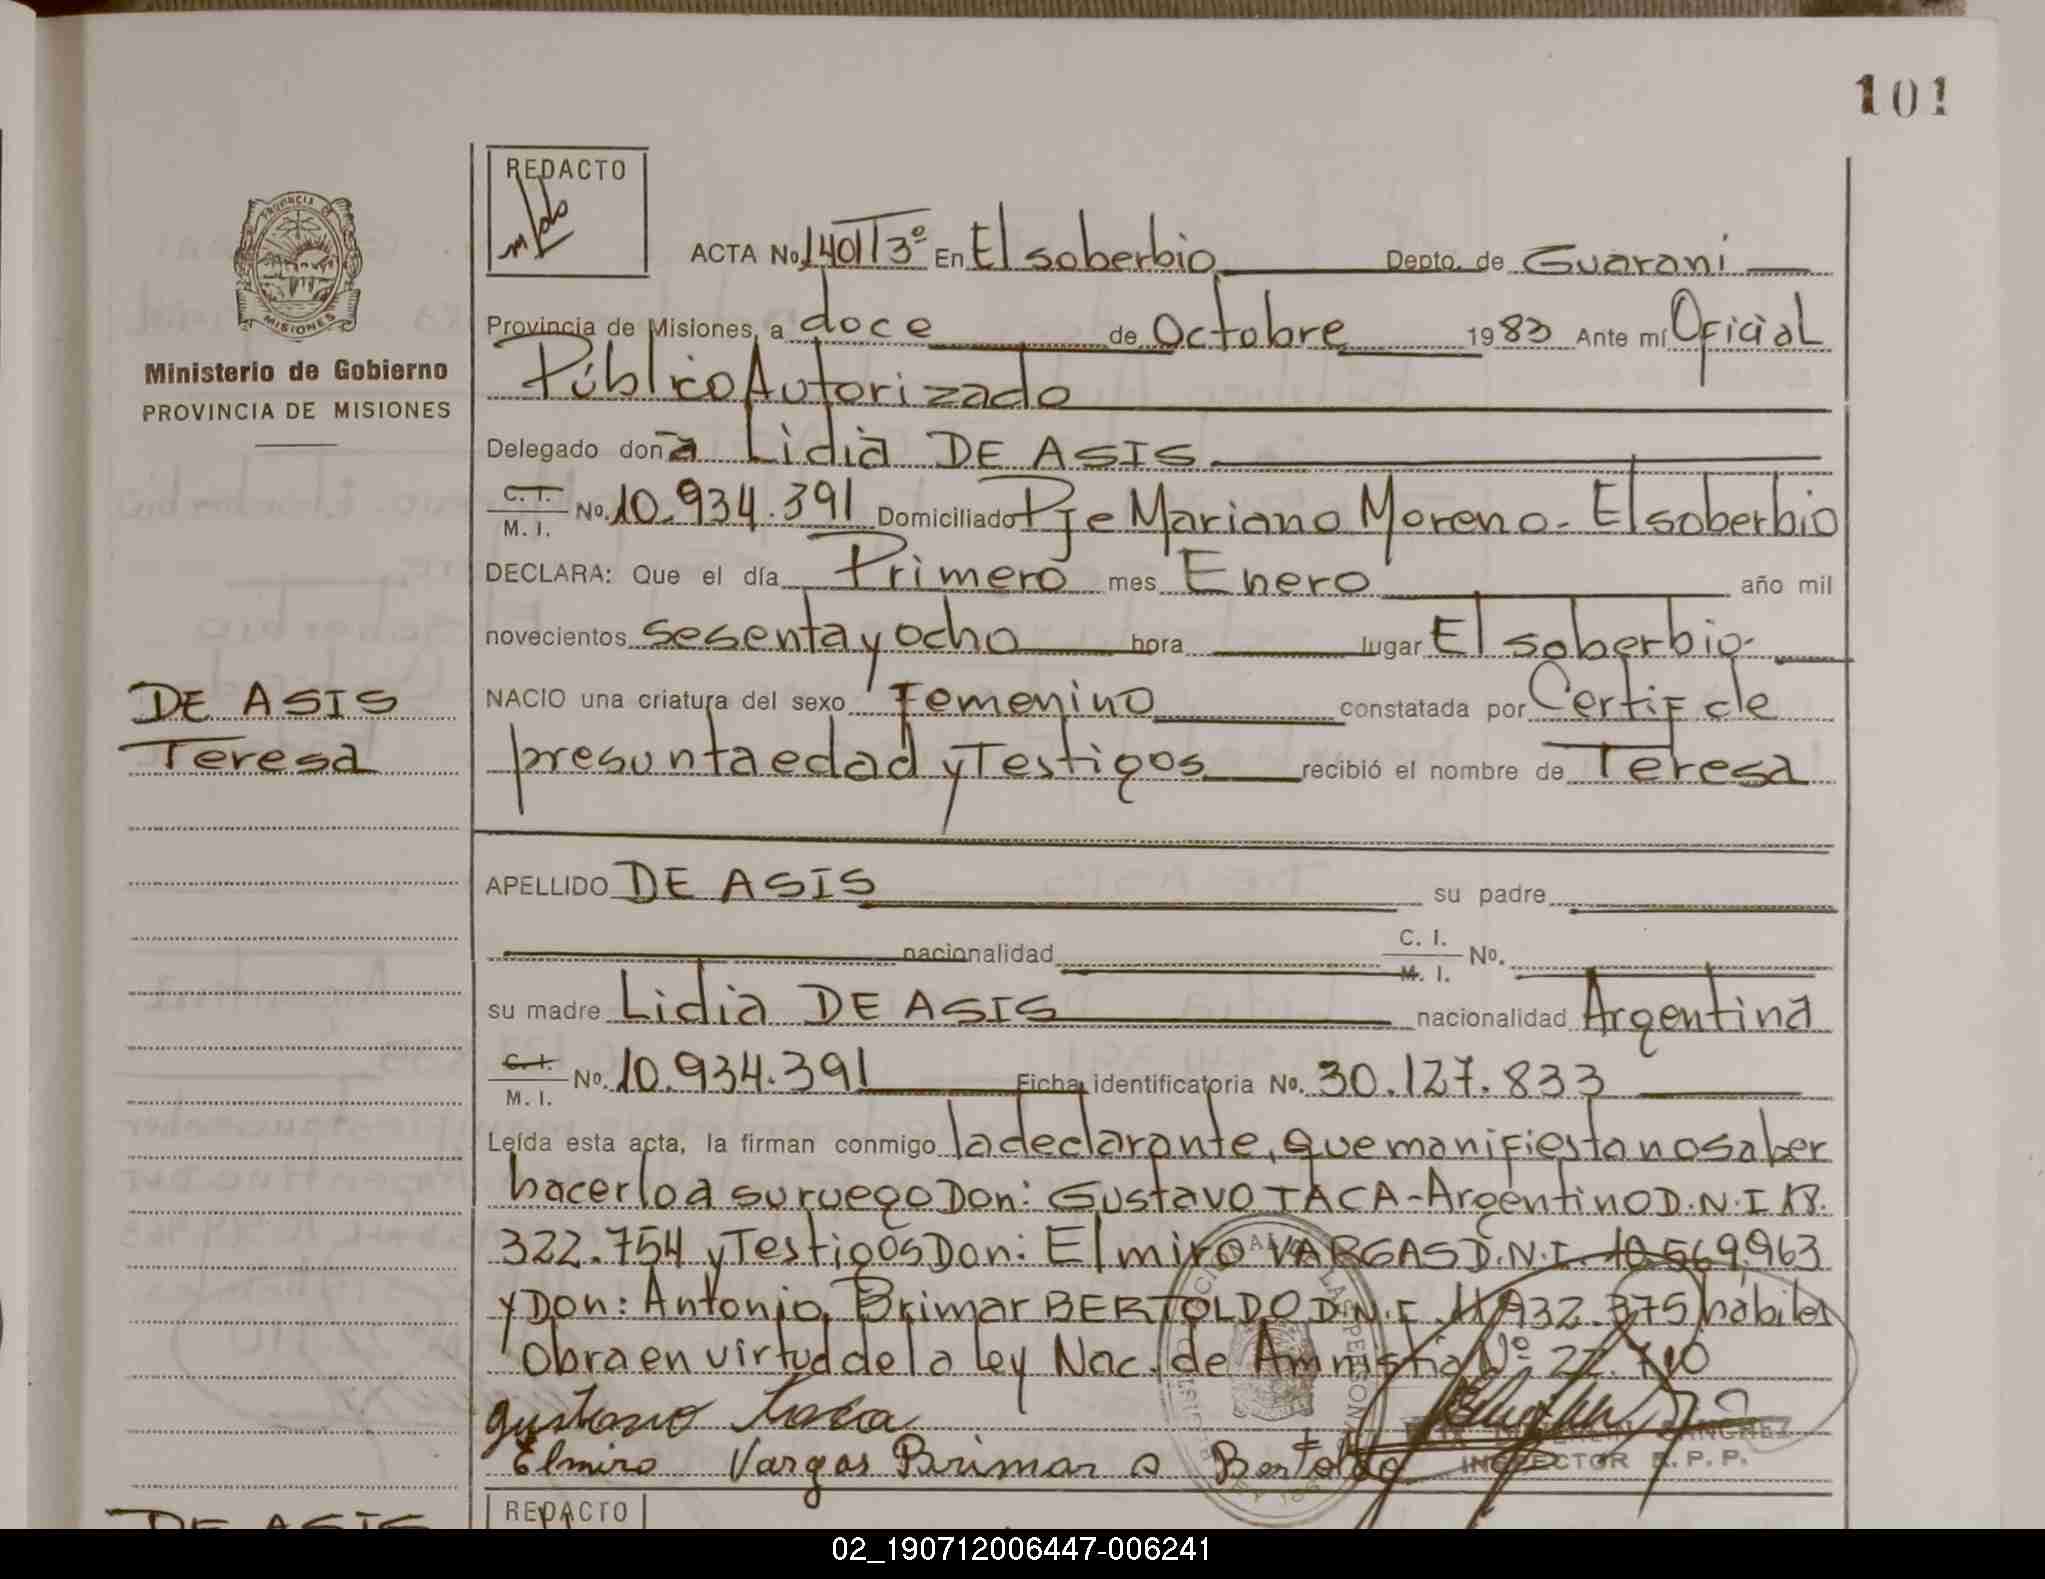 101
REDACTO
PROVINCIA DE
MISIONES
Ministerio de Gobierno
PROVINCIA DE MISIONES
DE ASIS
Teresa
ACTA No. 1401 T 3º En El soberbio Depto. de Guarani
Provincia de Misiones, a doce de Octobre 1983 Ante mí Oficial
Público Autorizado
Delegado doña Lidia DE ASIS
C. I. M. I. No. 10.934.391 Domiciliado Pje Mariano Moreno - El soberbio
DECLARA: Que el día Primero mes Enero año mil
novecientos sesenta y ocho hora lugar El soberbio-
NACIO una criatura del sexo Femenino constatada por Certif de
presunta edad y Testigos recibió el nombre de Teresa
APELLIDO DE ASIS su padre
nacionalidad C. I. M. I. No.
su madre Lidia DE ASIS nacionalidad Argentina
C. I. M. I. No. 10.934.391 Ficha identificatoria No. 30.127.833
Leída esta acta, la firman conmigo la declarante, que manifiesta no saber
hacerlo a su ruego Don: Gustavo TACA - Argentino D.N.I 18.
322.754 y Testigos Don: Elmiro VARGAS D.N.I. 10.569.963
y Don: Antonio Brimar BERTOLDO D.N.I. 11.932.375 habiles
Obra en virtud de la ley Nac. de Amnistia Nº 22.710
gustavo taca
Elmiro Vargas Brimar A Bertoldo
SANCHEZ
INSPECTOR R. P. P.
REDACTO
DE ASIS
02_190712006447-006241